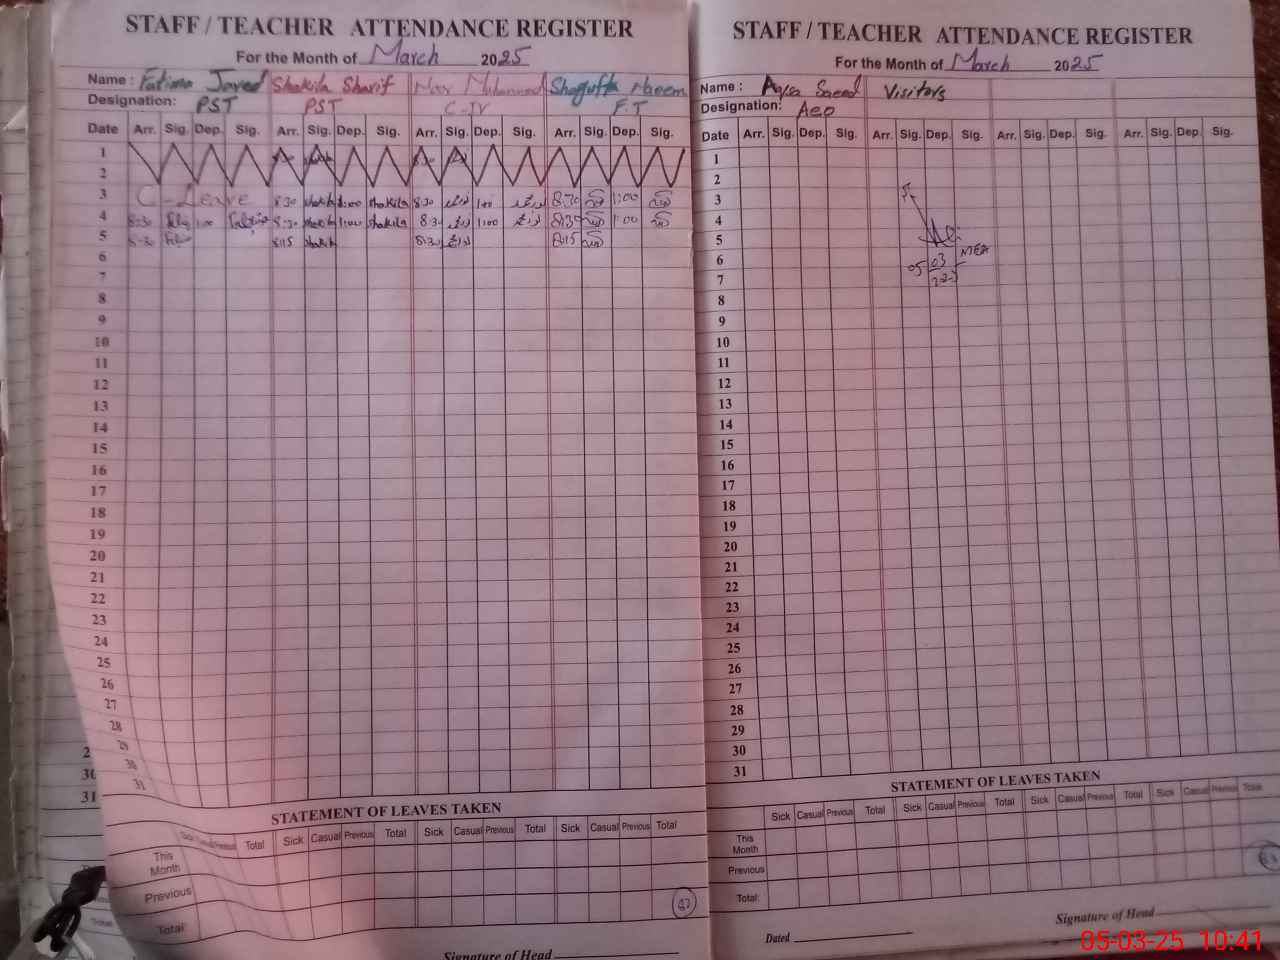 STAFF / TEACHER ATTENDANCE REGISTER
For the Month of March 2025
Name : Fatima Javed Shakila Sharif Noor Muhammad Shagufta Naeem
Designation: PST PST C-IV F.T
Date Arr. Sig. Dep. Sig. Arr. Sig. Dep. Sig. Arr. Sig. Dep. Sig. Arr. Sig. Dep. Sig.
1
2
3 C-Leave 8:30 shakila 1:00 shakila 8:30 1:00 8:30 1:00
4 8:30 1:00 8:30 shakila 1:00 shakila 8:30 1:00 8:30 1:00
5 8:30 8:15 shakila 8:30 8:15
6
7
8
9
10
11
12
13
14
15
16
17
18
19
20
21
22
23
24
25
26
27
28
29
30
31
STATEMENT OF LEAVES TAKEN
Sick Casual Previous Total Sick Casual Previous Total Sick Casual Previous Total Sick Casual Previous Total
This Month
Previous
Total:
Signature of Head
STAFF / TEACHER ATTENDANCE REGISTER
For the Month of March 2025
Name : Aqsa Saeed Visitors
Designation: Aeo
Date Arr. Sig. Dep. Sig. Arr. Sig. Dep. Sig. Arr. Sig. Dep. Sig. Arr. Sig. Dep. Sig.
1
2
3
4
5
6 05 03 MEA
7
8
9
10
11
12
13
14
15
16
17
18
19
20
21
22
23
24
25
26
27
28
29
30
31
STATEMENT OF LEAVES TAKEN
Sick Casual Previous Total Sick Casual Previous Total Sick Casual Previous Total Sick Casual Previous Total
This Month
Previous
Total:
Signature of Head
Dated
05-03-25 10:41